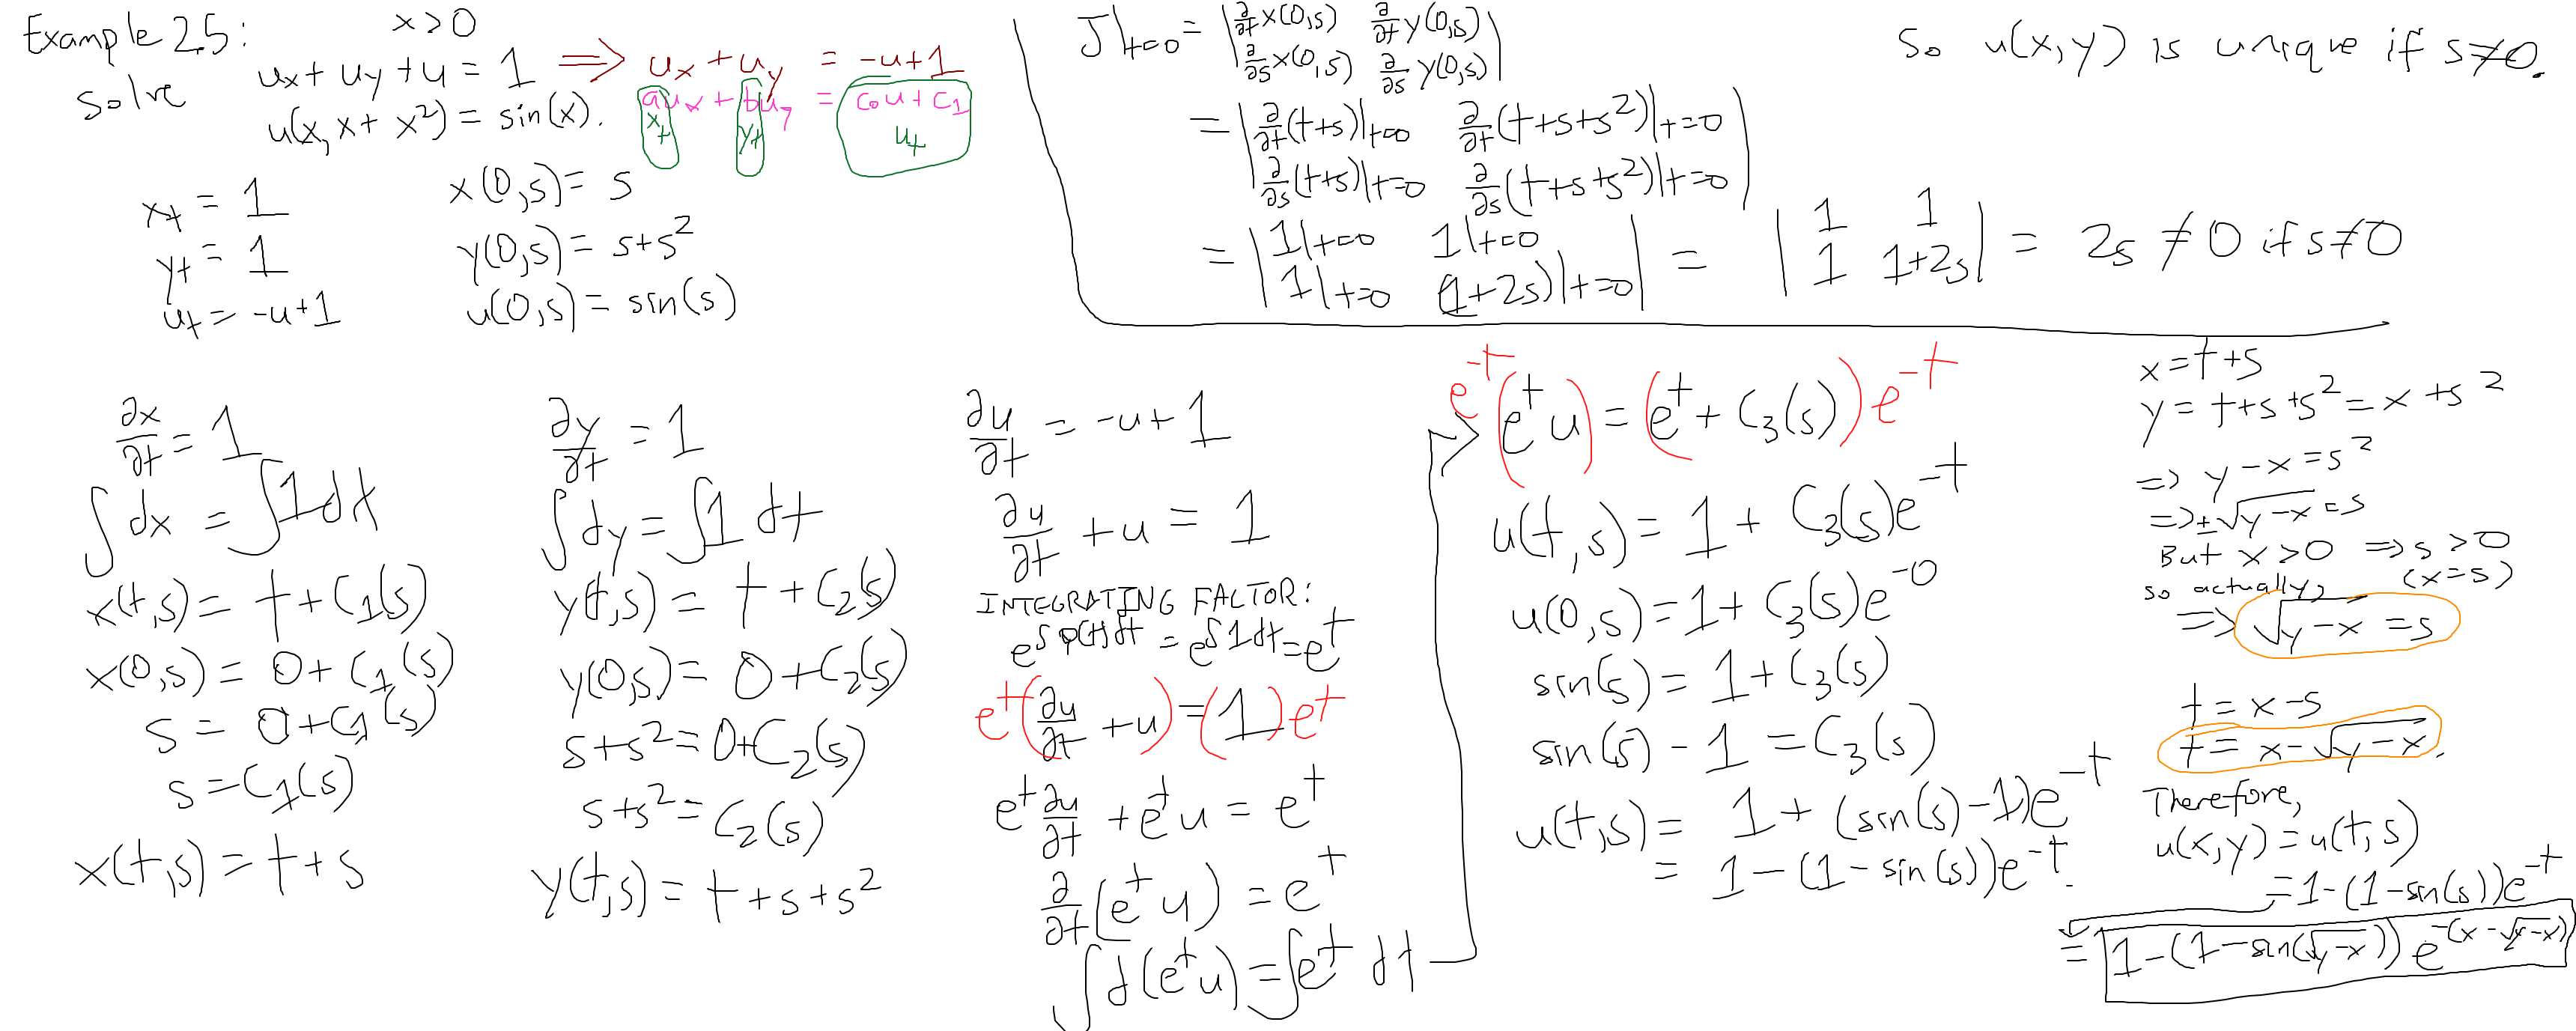 Example 2.5:
x>0
Solve
u_x + u_y + u = 1 ⇒ u_x + u_y = -u+1
u(x, x+x²) = sin(x).
au_x + bu_y = c₀u + c₁
x_t y_t u_t
x_t = 1
y_t = 1
u_t = -u+1
x(0,s) = s
y(0,s) = s+s²
u(0,s) = sin(s)
J|t=0 = |∂/∂t x(0,s) ∂/∂t y(0,s)|
|∂/∂s x(0,s) ∂/∂s y(0,s)|
= |∂/∂t (t+s)|t=0 ∂/∂t (t+s+s²)|t=0|
|∂/∂s (t+s)|t=0 ∂/∂s (t+s+s²)|t=0|
= |1|t=0 1|t=0| = |1 1| = 2s ≠ 0 if s≠0
|1|t=0 (1+2s)|t=0| |1 1+2s|
So u(x,y) is unique if s≠0.
∂x/∂t = 1
∫dx = ∫1dt
x(t,s) = t + C₁(s)
x(0,s) = 0 + C₁(s)
s = 0+C₁(s)
s = C₁(s)
x(t,s) = t+s
∂y/∂t = 1
∫dy = ∫1 dt
y(t,s) = t + C₂(s)
y(0,s) = 0 + C₂(s)
s+s² = 0+C₂(s)
s+s² = C₂(s)
y(t,s) = t+s+s²
∂u/∂t = -u+1
∂u/∂t + u = 1
INTEGRATING FACTOR:
e^∫p(t)dt = e^∫1dt = e^t
e^t(∂u/∂t + u) = (1)e^t
e^t ∂u/∂t + e^t u = e^t
∂/∂t (e^t u) = e^t
∫d(e^t u) = ∫e^t dt
e^-t(e^t u) = (e^t + C₃(s))e^-t
u(t,s) = 1 + C₃(s)e^-t
u(0,s) = 1 + C₃(s)e^-0
sin(s) = 1 + C₃(s)
sin(s) - 1 = C₃(s)
u(t,s) = 1 + (sin(s)-1)e^-t
= 1-(1-sin(s))e^-t.
x = t+s
y = t+s+s² = x+s²
⇒ y-x = s²
⇒ ±√(y-x) = s
But x>0 ⇒ s>0
so actually, (x=s)
⇒ √(y-x) = s
t = x-s
t = x-√(y-x).
Therefore,
u(x,y) = u(t,s)
= 1-(1-sin(s))e^-t
= 1-(1-sin(√(y-x)))e^-(x-√(y-x))